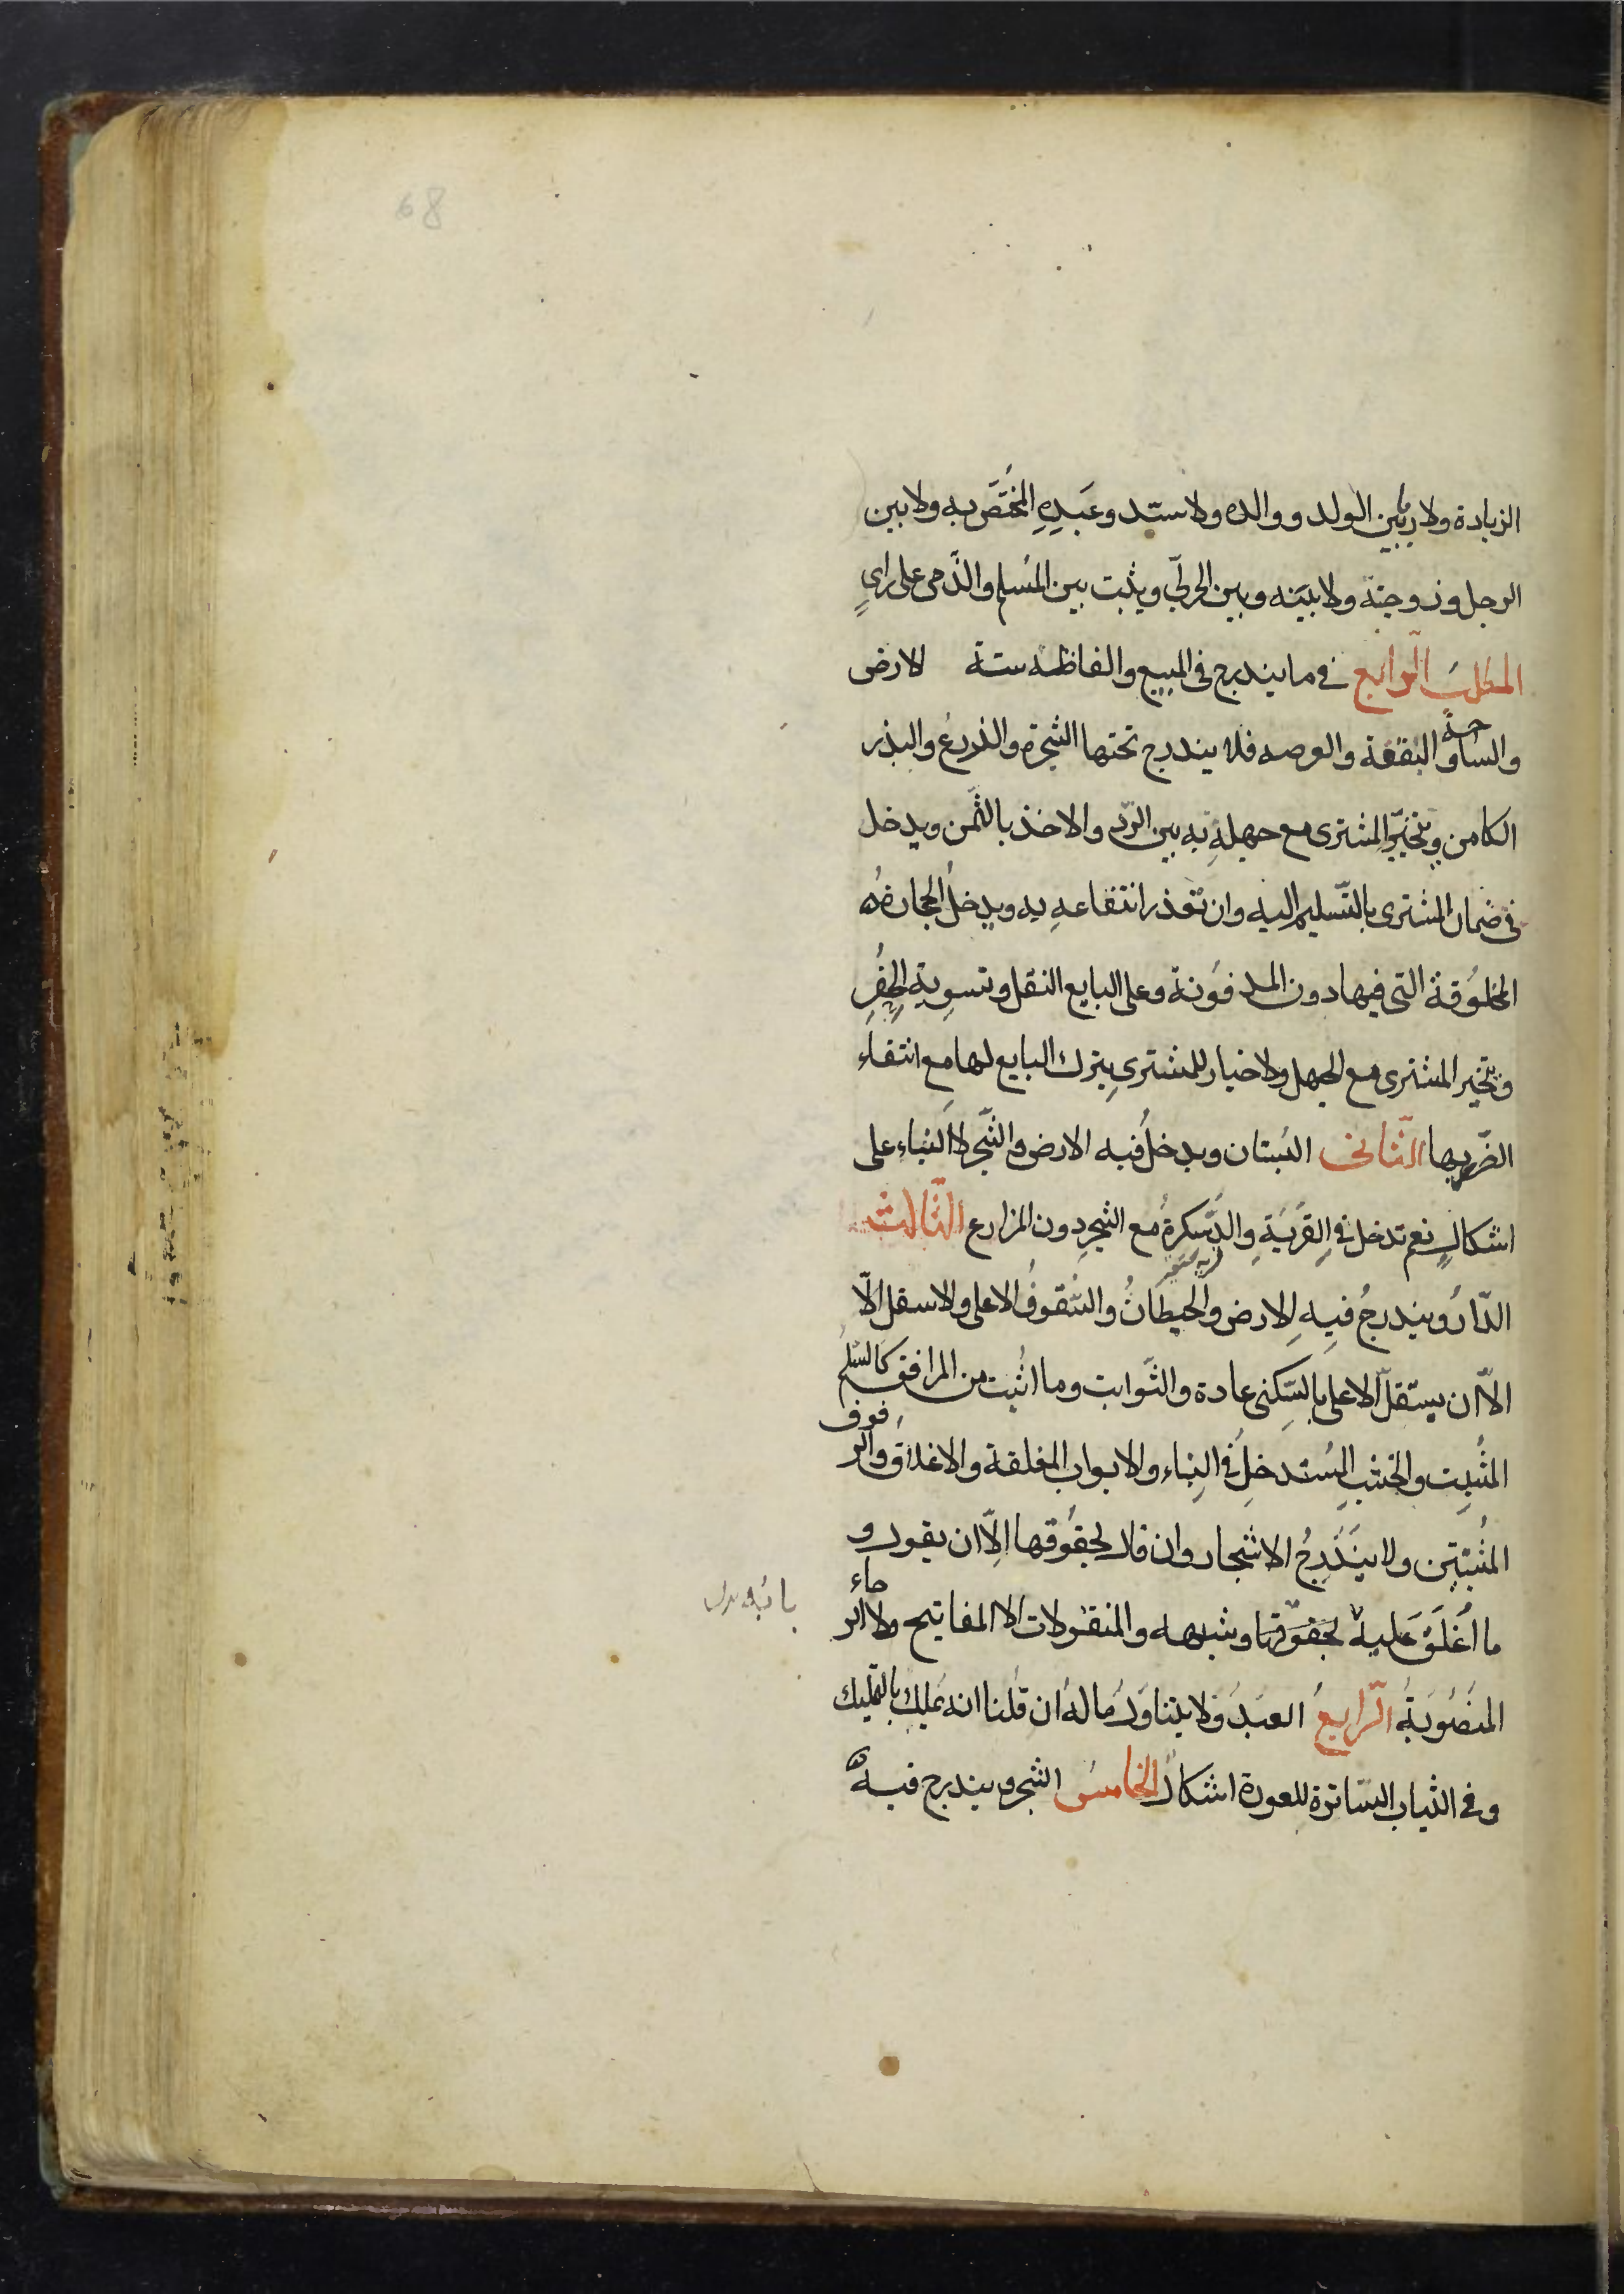 68
الزيادة ولا ربا بين الولد ووالده ولا سيد وعبده المختص به ولا بين
الرجل وزوجته ولا بينه وبين الحربي ويثبت بين المسلم والذمي على رايٍ
المطلب الرابع في ما يندرج في المبيع والفاظه ستة الارض
والساحة والبقعة والعرصه فلا يندرج تحتها الشجرة والزرع والبذر
الكامن ويتخير المشترى مع جهله به بين الرد والاخذ بالثمن ويدخل
فى ضمان المشترى بالتسليم اليه وان تعذر انتفاعه به ويدخل الحجارة
المخلوقة التى فيها دون المدفونة وعلى البايع النقل وتسوية الحفر
ويتخير المشترى مع الجهل ولا خيار للمشتري بترك البايع لها مع انتفاء
الضرر بها الثانى البستان ويدخل فيه الارض والشجر لا البناء على
اشكالٍ نعم تدخل في القرية والدسكرة مع الشجر دون المزارع الثالث
الدار ويندرج فيه الارض والحيطان والسقوف الاعلى والاسفل الّا
الّا ان يستقلّ الاعلى بالسكنى عادة والثوابت وما اثبت من المرافق كالسلم
المثبت والخشب المستدخل في البناء والابواب المغلقة والاغلاق والرفوف
المثبتين ولا يندرج الاشجار وان قال بحقوقها الّا ان يقول و
ما اغلق عليه بحقوقها وشبهه والمنقولات الا المفاتيح ولا الرحاء
المنصوبة الرابع العبد ولا يتناول ماله ان قلنا انه يملك بالتمليك
وفي الثياب الساترة للعورة اشكال الخامس الشجر ويندرج فيه